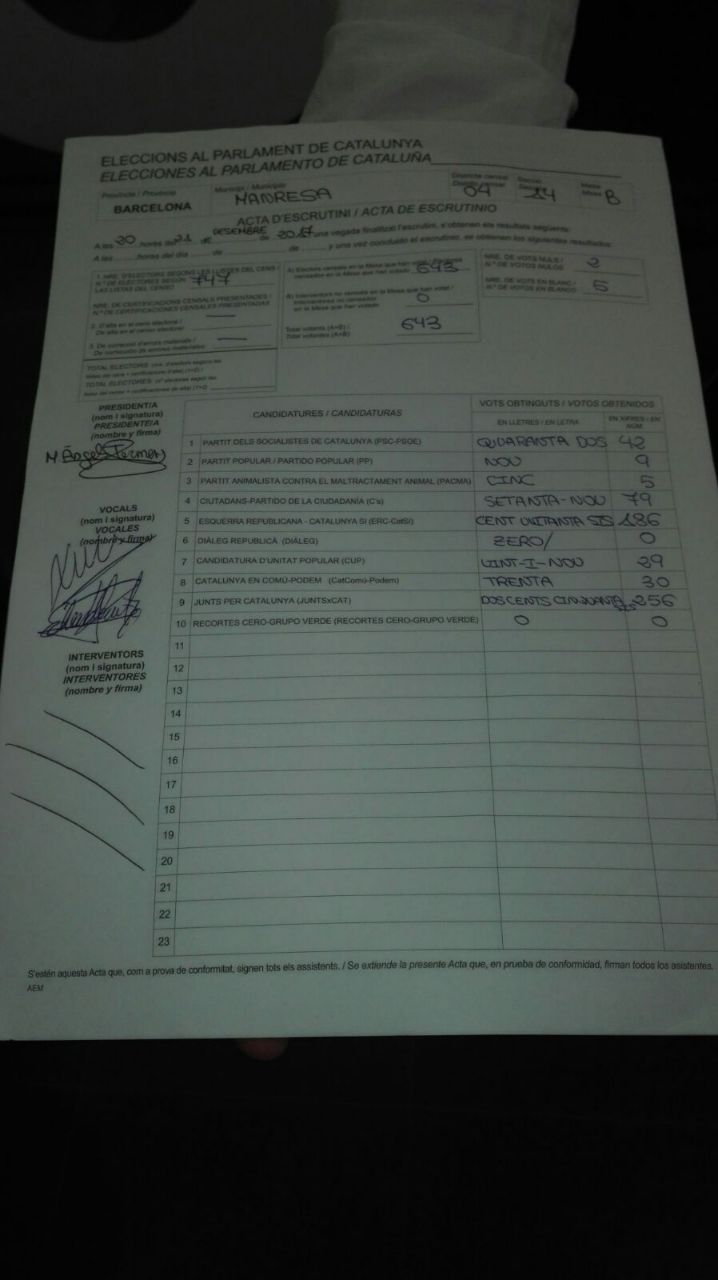 ELECCIONS AL PARLAMENT DE CATALUNYA
ELECCIONES AL PARLAMENTO DE CATALUÑA
Província / Provincia
Municipi / Municipio
Districte censal
Secció
Mesa
BARCELONA
MANRESA
04
B
ACTA D'ESCRUTINI / ACTA DE ESCRUTINIO
A les 20 hores del 21 de DESEMBRE de 2017 una vegada finalitzat l'escrutini, s'obtenen els resultats següents:
A las hores del día de de y una vez concluido el escrutinio, se obtienen los siguientes resultados:
1. NRE. D'ELECTORS SEGONS LES LLISTES DEL CENS /
N.º DE ELECTORES SEGÚN
LAS LISTAS DEL CENSO
747
NRE. DE CERTIFICACIONS CENSALS PRESENTADES /
N.º DE CERTIFICACIONES CENSALES PRESENTADAS
2. D'alta en el cens electoral /
De alta en el censo electoral
3. De correcció d'errors materials /
De corrección de errores materiales
TOTAL ELECTORS
TOTAL ELECTORES
A) Electors censats en la Mesa que han votat /
censados en la Mesa que han votado 643
B) Interventors no censats en la Mesa que han votat /
Interventores no censados
en la Mesa que han votado
0
Total votants (A+B) /
Total votantes (A+B)
643
NRE. DE VOTS NULS /
N.º DE VOTOS NULOS
2
NRE. DE VOTS EN BLANC /
N.º DE VOTOS EN BLANCO
5
PRESIDENT/A
(nom i signatura)
PRESIDENTE/A
(nombre y firma)
VOCALS
(nom i signatura)
VOCALES
(nombre y firma)
INTERVENTORS
(nom i signatura)
INTERVENTORES
(nombre y firma)
CANDIDATURES / CANDIDATURAS
VOTS OBTINGUTS / VOTOS OBTENIDOS
EN LLETRES / EN LETRA
EN XIFRES / EN NÚM.
1 PARTIT DELS SOCIALISTES DE CATALUNYA (PSC-PSOE) QUARANTA DOS 42
2 PARTIT POPULAR / PARTIDO POPULAR (PP) NOU 9
3 PARTIT ANIMALISTA CONTRA EL MALTRACTAMENT ANIMAL (PACMA) CINC 5
4 CIUTADANS-PARTIDO DE LA CIUDADANÍA (C's) SETANTA-NOU 79
5 ESQUERRA REPUBLICANA - CATALUNYA SÍ (ERC-CatSí) CENT VUITANTA SIS 186
6 DIÀLEG REPUBLICÀ (DIÀLEG) ZERO/ 0
7 CANDIDATURA D'UNITAT POPULAR (CUP) VINT-I-NOU 29
8 CATALUNYA EN COMÚ-PODEM (CatComú-Podem) TRENTA 30
9 JUNTS PER CATALUNYA (JUNTSxCAT) DOSCENTS CINQUANTA SIS 256
10 RECORTES CERO-GRUPO VERDE (RECORTES CERO-GRUPO VERDE) 0 0
11
12
13
14
15
16
17
18
19
20
21
22
23
S'estén aquesta Acta que, com a prova de conformitat, signen tots els assistents. / Se extiende la presente Acta que, en prueba de conformidad, firman todos los asistentes.
AEM